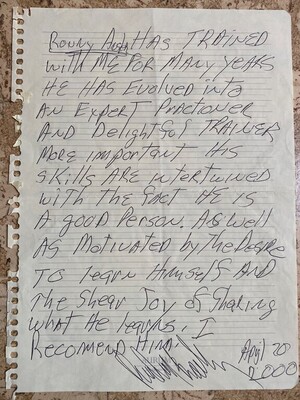 Ronny HAS TRAINED
with ME FOR MANY YEARS
HE HAS Evolved into
AN Expert Practioner
AND Delightful TRAINER
More important His
skills ARE intertwined
with the fact HE is
A good Person. As well
AS Motivated by the Desire
TO learn Himself AND
the Shear Joy of Sharing
what He learns. I
Recomend Him
April 20
2000